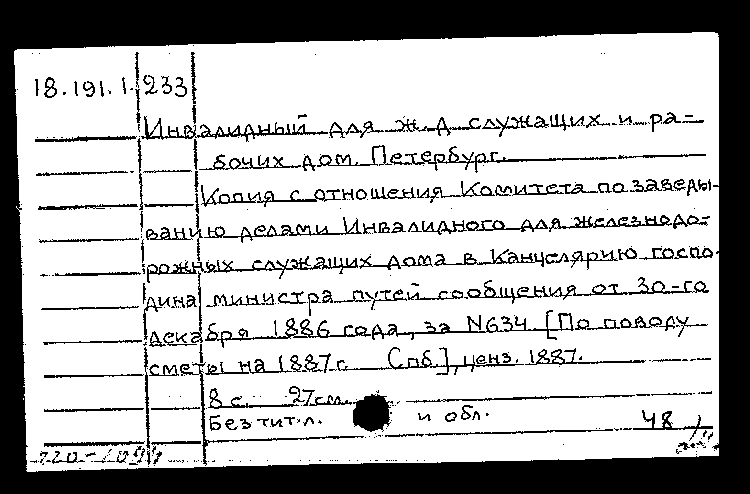 18.191.1.233
Инвалидный для ж.д служащих и ра-
бочих дом. Петербург.
Копия с отношения Комитета по заведы-
ванию делами Инвалидного для железнодо-
рожных служащих дома в Канцелярию госпо-
дина министра путей сообщения от 30-го
декабря 1886 года, за №634. [По поводу
сметы на 1887 г. Спб.], ценз. 1887.
8 с. 27 см.
Без тит. л. и обл. 48